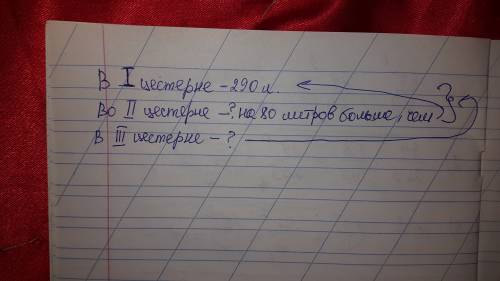 В I цестерне - 290 л.
Во II цестерне - ? на 80 литров больше, чем
В III цестерне - ?